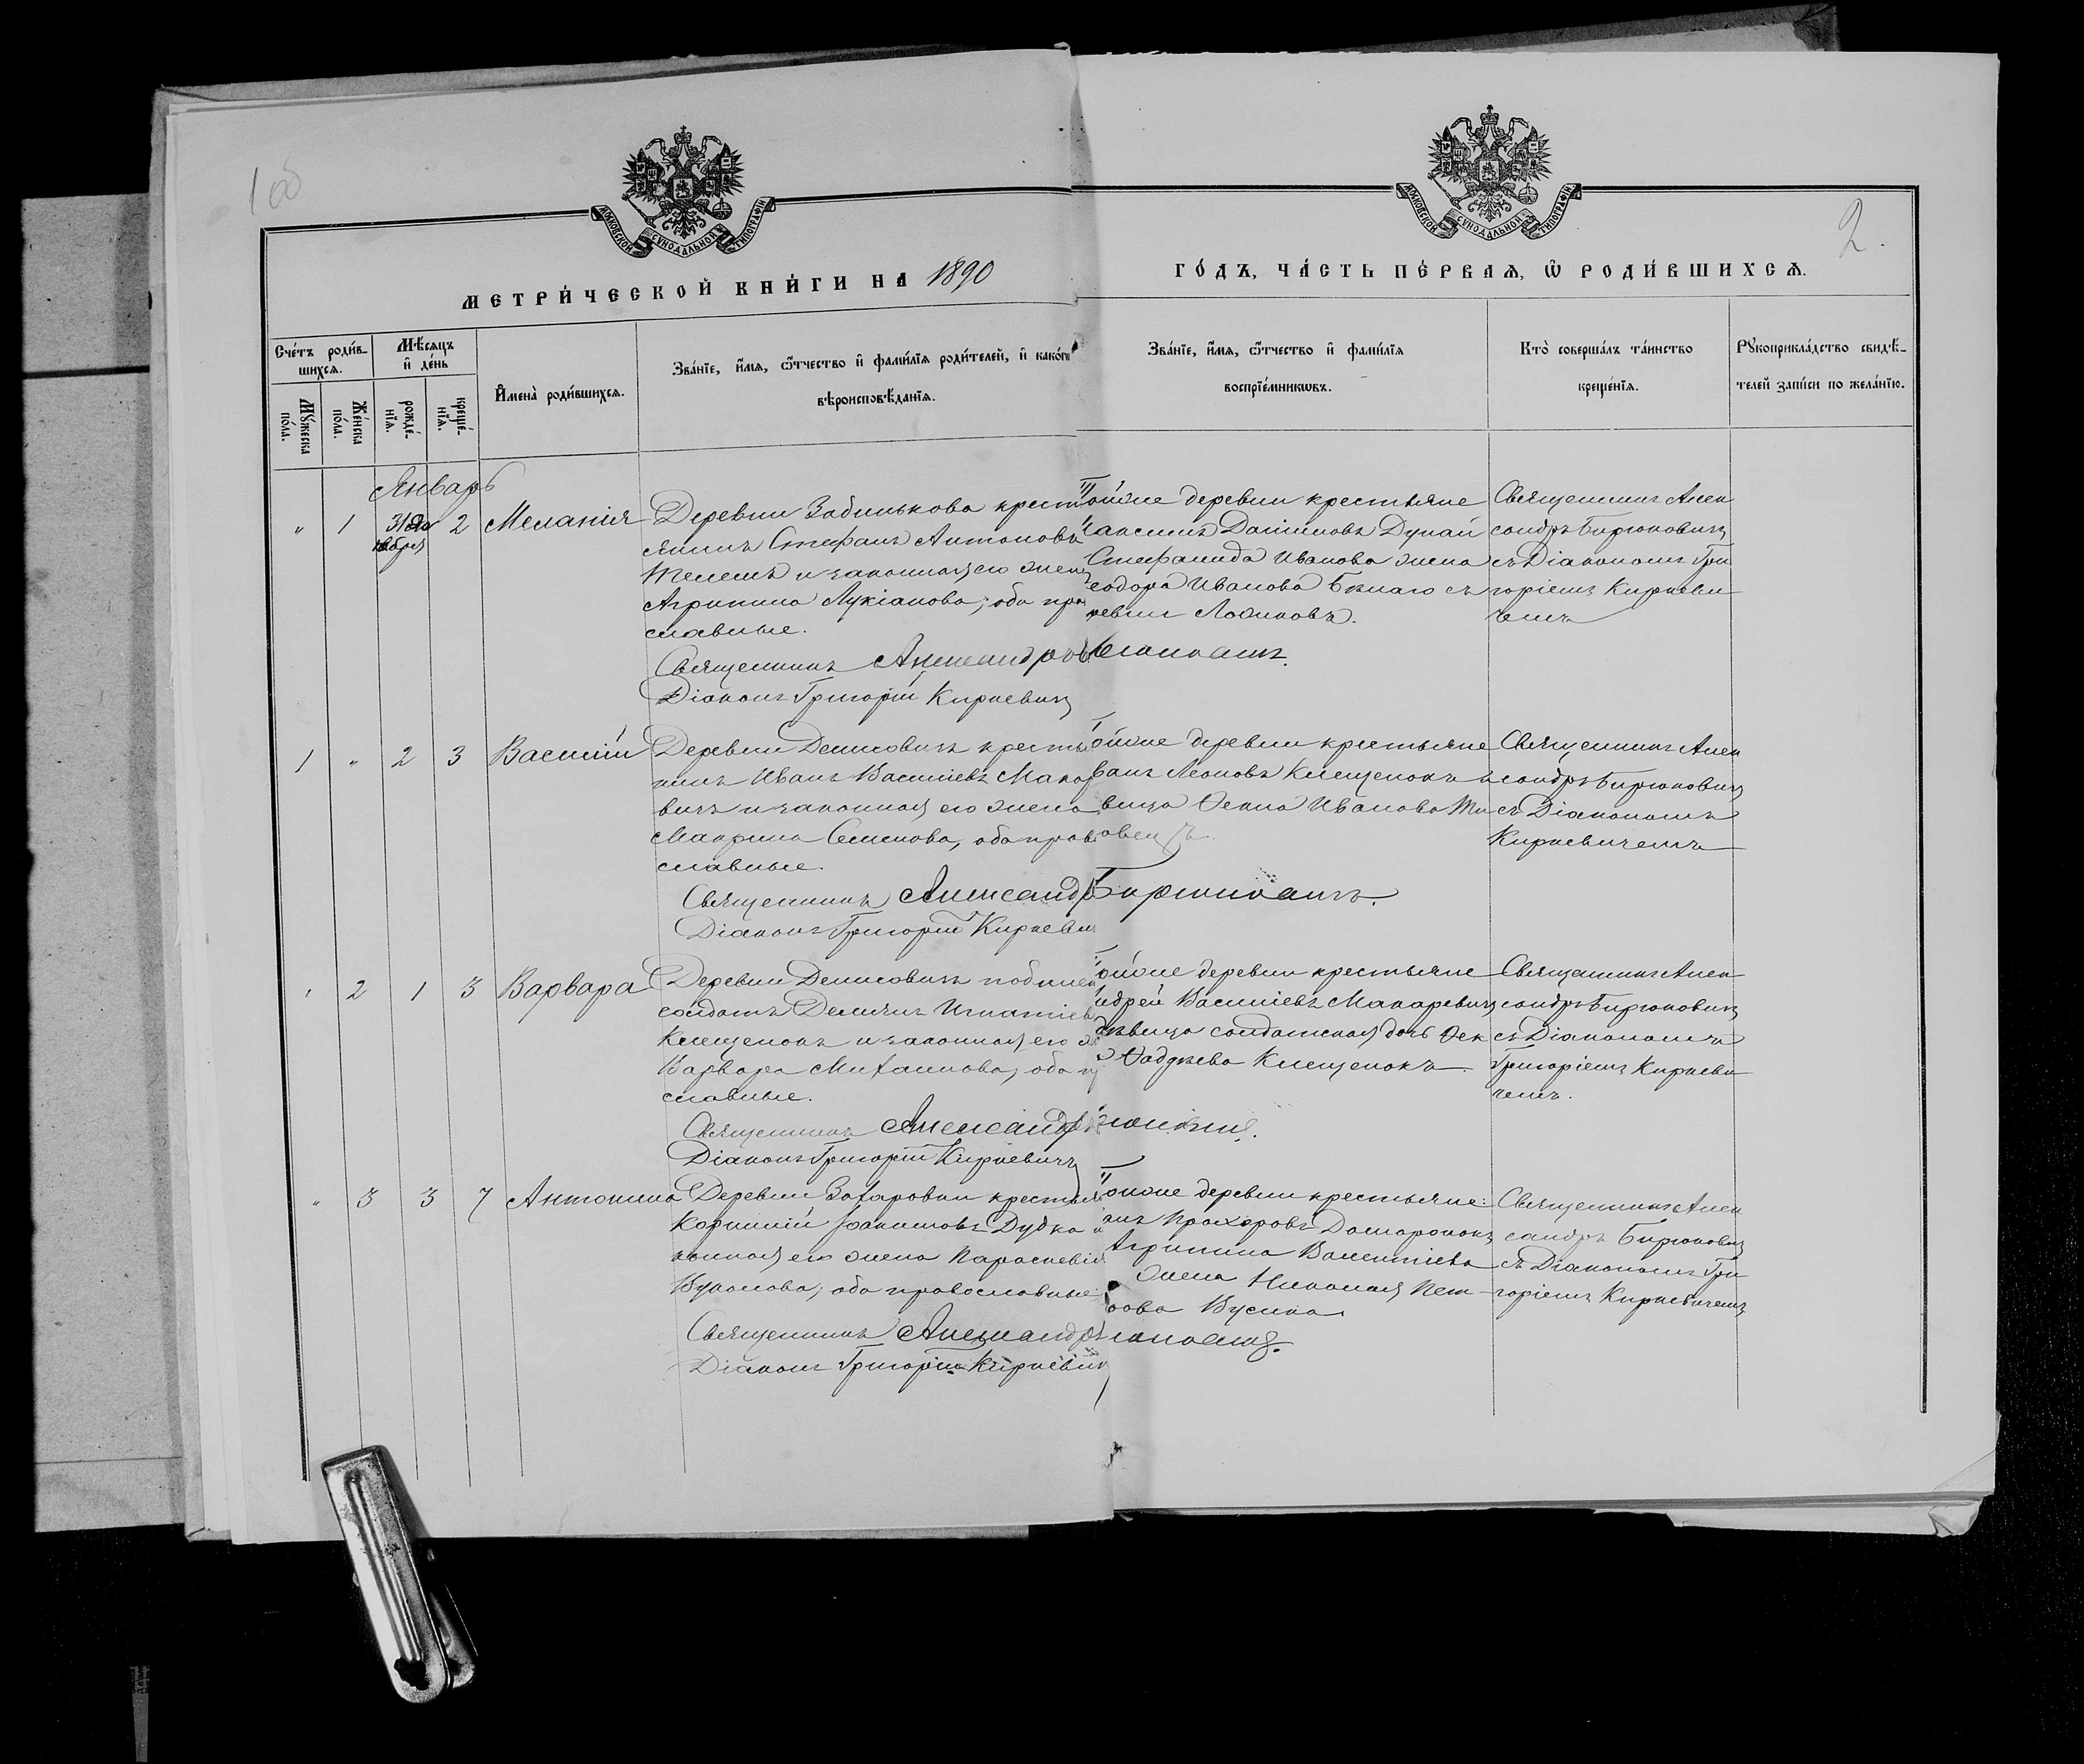 1 об
2.
МОСКОВСКОЙ СѴНОДАЛЬНОЙ ТИПОГРАФІИ
МОСКОВСКОЙ СѴНОДАЛЬНОЙ ТИПОГРАФІИ
МЕТРИ́ЧЕСКОЙ КНИ́ГИ НА 1890
ГО́ДЪ, ЧА́СТЬ ПЕ́РВАЯ, Ѡ РОДИ́ВШИХСЯ.
Сче́тъ роди́в-
шихся.
Мꙋ́жеска
по́ла.
Же́нска
по́ла.
Мѣ́сяцъ
и҆ де́нь
рожде́-
нїя.
креще́-
нїя.
И҆мена̀ роди́вшихся.
Зва́нїе, и҆́мя, ѻ҆́тчество и҆ фами́лїя роди́телей, и҆ како́гѡ
вѣроисповѣ́данїя.
Зва́нїе, и҆́мя, ѻ҆́тчество и҆ фами́лїя
воспрїе́мникѡвъ.
Кто̀ соверша́лъ та́инство
креще́нїя.
Рꙋкоприкла́дство свидѣ́-
телей за́писи по жела́нїю.
Январь
" 1 31 2 Меланія
Деревни Забинькова крест
янинъ Стефанъ Антоновъ
и законная его жена
Агрипина Лукіанова; оба пра
славные.
Священникъ Александръ
Діаконъ Григорій Киркевичъ
тойже деревни крестьяне
Даніиловъ Дунай
Стефанида Иванова жена
еодора Иванова
ревни
Священникъ Алек
сандръ Бирюковичъ
съ Діакономъ Гри
горіемъ Киркеви
чемъ
1 " 2 3 Василій
Деревни Денисовичъ кресть
нинъ Иванъ Васильевъ Макар
вичъ и законная его жена
Макрина Семенова, оба право
славные.
Священникъ Александръ Бирюковичъ.
Діаконъ Григорій Киркевич
ойже деревни крестьяне
ванъ Леоновъ Клещенокъ и
вица Фекла Иванова
Священникъ Алек
сандръ Бирюковичъ
съ Діакономъ
Киркевичемъ
" 2 1 3 Варвара
Деревни Денисовичъ
солдатъ Демянъ Игнатіев
Клещенокъ и законная его
Варвара Михаилова, оба
славные.
Священникъ Александръ
Діаконъ Григорій Киркевичъ
ойже деревни крестьяне
ндрей Васильевъ Макаревичъ
дѣвица солдатская дочь Фек
Фаддѣева Клещенокъ
Священникъ Алек
сандръ Бирюковичъ
съ Діакономъ
Григоріемъ Киркеви
чемъ.
" 3 3 7 Антонина
Деревни Захаровки крестьян
Корнилій Іоакимовъ Дудка и
конная его жена Параскевія
оба православные
Священникъ Александръ
Діаконъ Григорій Киркевичъ
тойже деревни крестьяне:
Прохоровъ
Агрипина
жена Николая Пет
рова Бусина
Священникъ Алек
сандръ Бирюковичъ
съ Діакономъ Гри
горіемъ Киркевичемъ